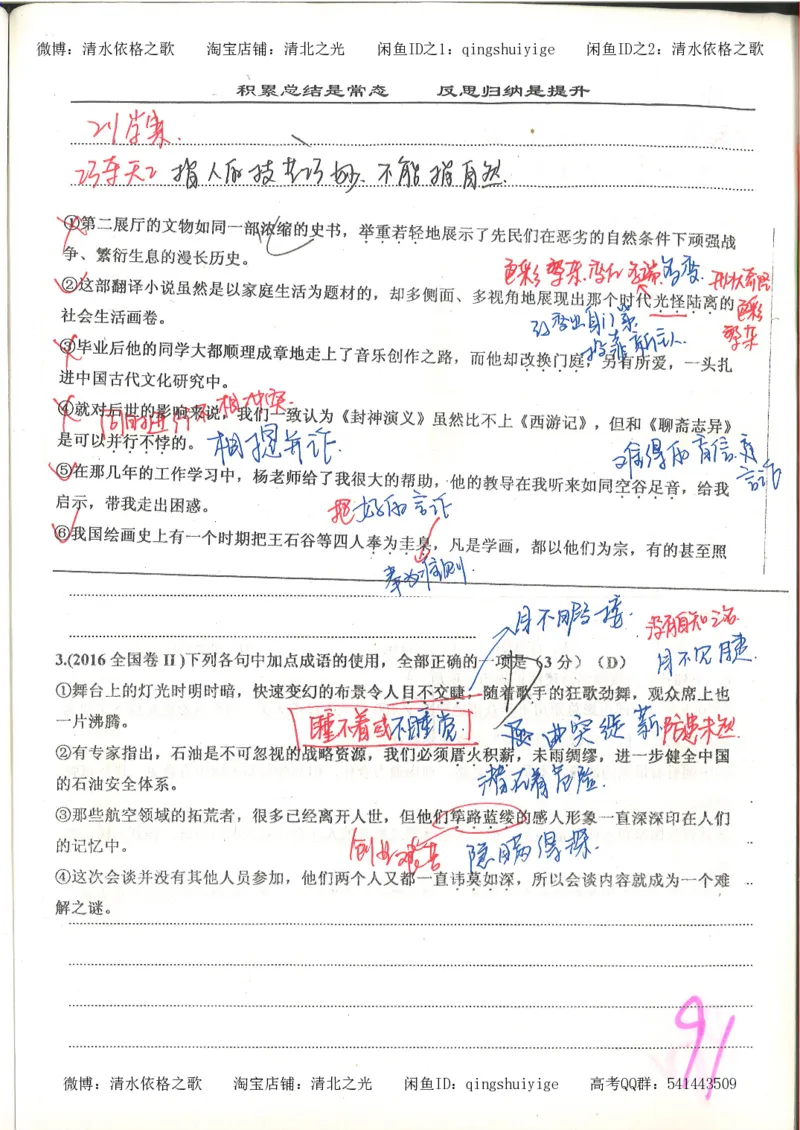 微博：清水依格之歌 淘宝店铺：清北之光 闲鱼ID之1：qingshuiyige 闲鱼ID之2：清水依格之歌
积累总结是常态 反思归纳是提升
巧夺天工 指人的技艺巧妙 不能指自然.
①第二展厅的文物如同一部浓缩的史书，举重若轻地展示了先民们在恶劣的自然条件下顽强战
争、繁衍生息的漫长历史。
色彩繁杂
②这部翻译小说虽然是以家庭生活为题材的，却多侧面、多视角地展现出那个时代光怪陆离的
色彩
繁杂
社会生活画卷。
改变出身门第
投靠新主人
③毕业后他的同学大都顺理成章地走上了音乐创作之路，而他却改换门庭，另有所爱，一头扎
进中国古代文化研究中。
④就对后世的影响来说，我们一致认为《封神演义》虽然比不上《西游记》，但和《聊斋志异》
同时进行不相冲突.
是可以并行不悖的。
相提并论.
难得的音信、
言论
⑤在那几年的工作学习中，杨老师给了我很大的帮助，他的教导在我听来如同空谷足音，给我
启示，带我走出困惑。
把好的言论
⑥我国绘画史上有一个时期把王石谷等四人奉为圭臬，凡是学画，都以他们为宗，有的甚至照
奉为准则.
目不暇接.
没有自知之名
目不见睫.
3.(2016 全国卷 II )下列各句中加点成语的使用，全部正确的一项是（3 分）（D）
D
①舞台上的灯光时明时暗，快速变幻的布景令人目不交睫，随着歌手的狂歌劲舞，观众席上也
一片沸腾。
睡不着或不睡觉.
曲突徙薪
隐患未然
②有专家指出，石油是不可忽视的战略资源，我们必须厝火积薪，未雨绸缪，进一步健全中国
的石油安全体系。
潜在着危险.
③那些航空领域的拓荒者，很多已经离开人世，但他们筚路蓝缕的感人形象一直深深印在人们
的记忆中。
创业艰苦
隐瞒得深.
④这次会谈并没有其他人员参加，他们两个人又都一直讳莫如深，所以会谈内容就成为一个难
解之谜。
91
微博：清水依格之歌 淘宝店铺：清北之光 闲鱼ID：qingshuiyige 高考QQ群：541443509